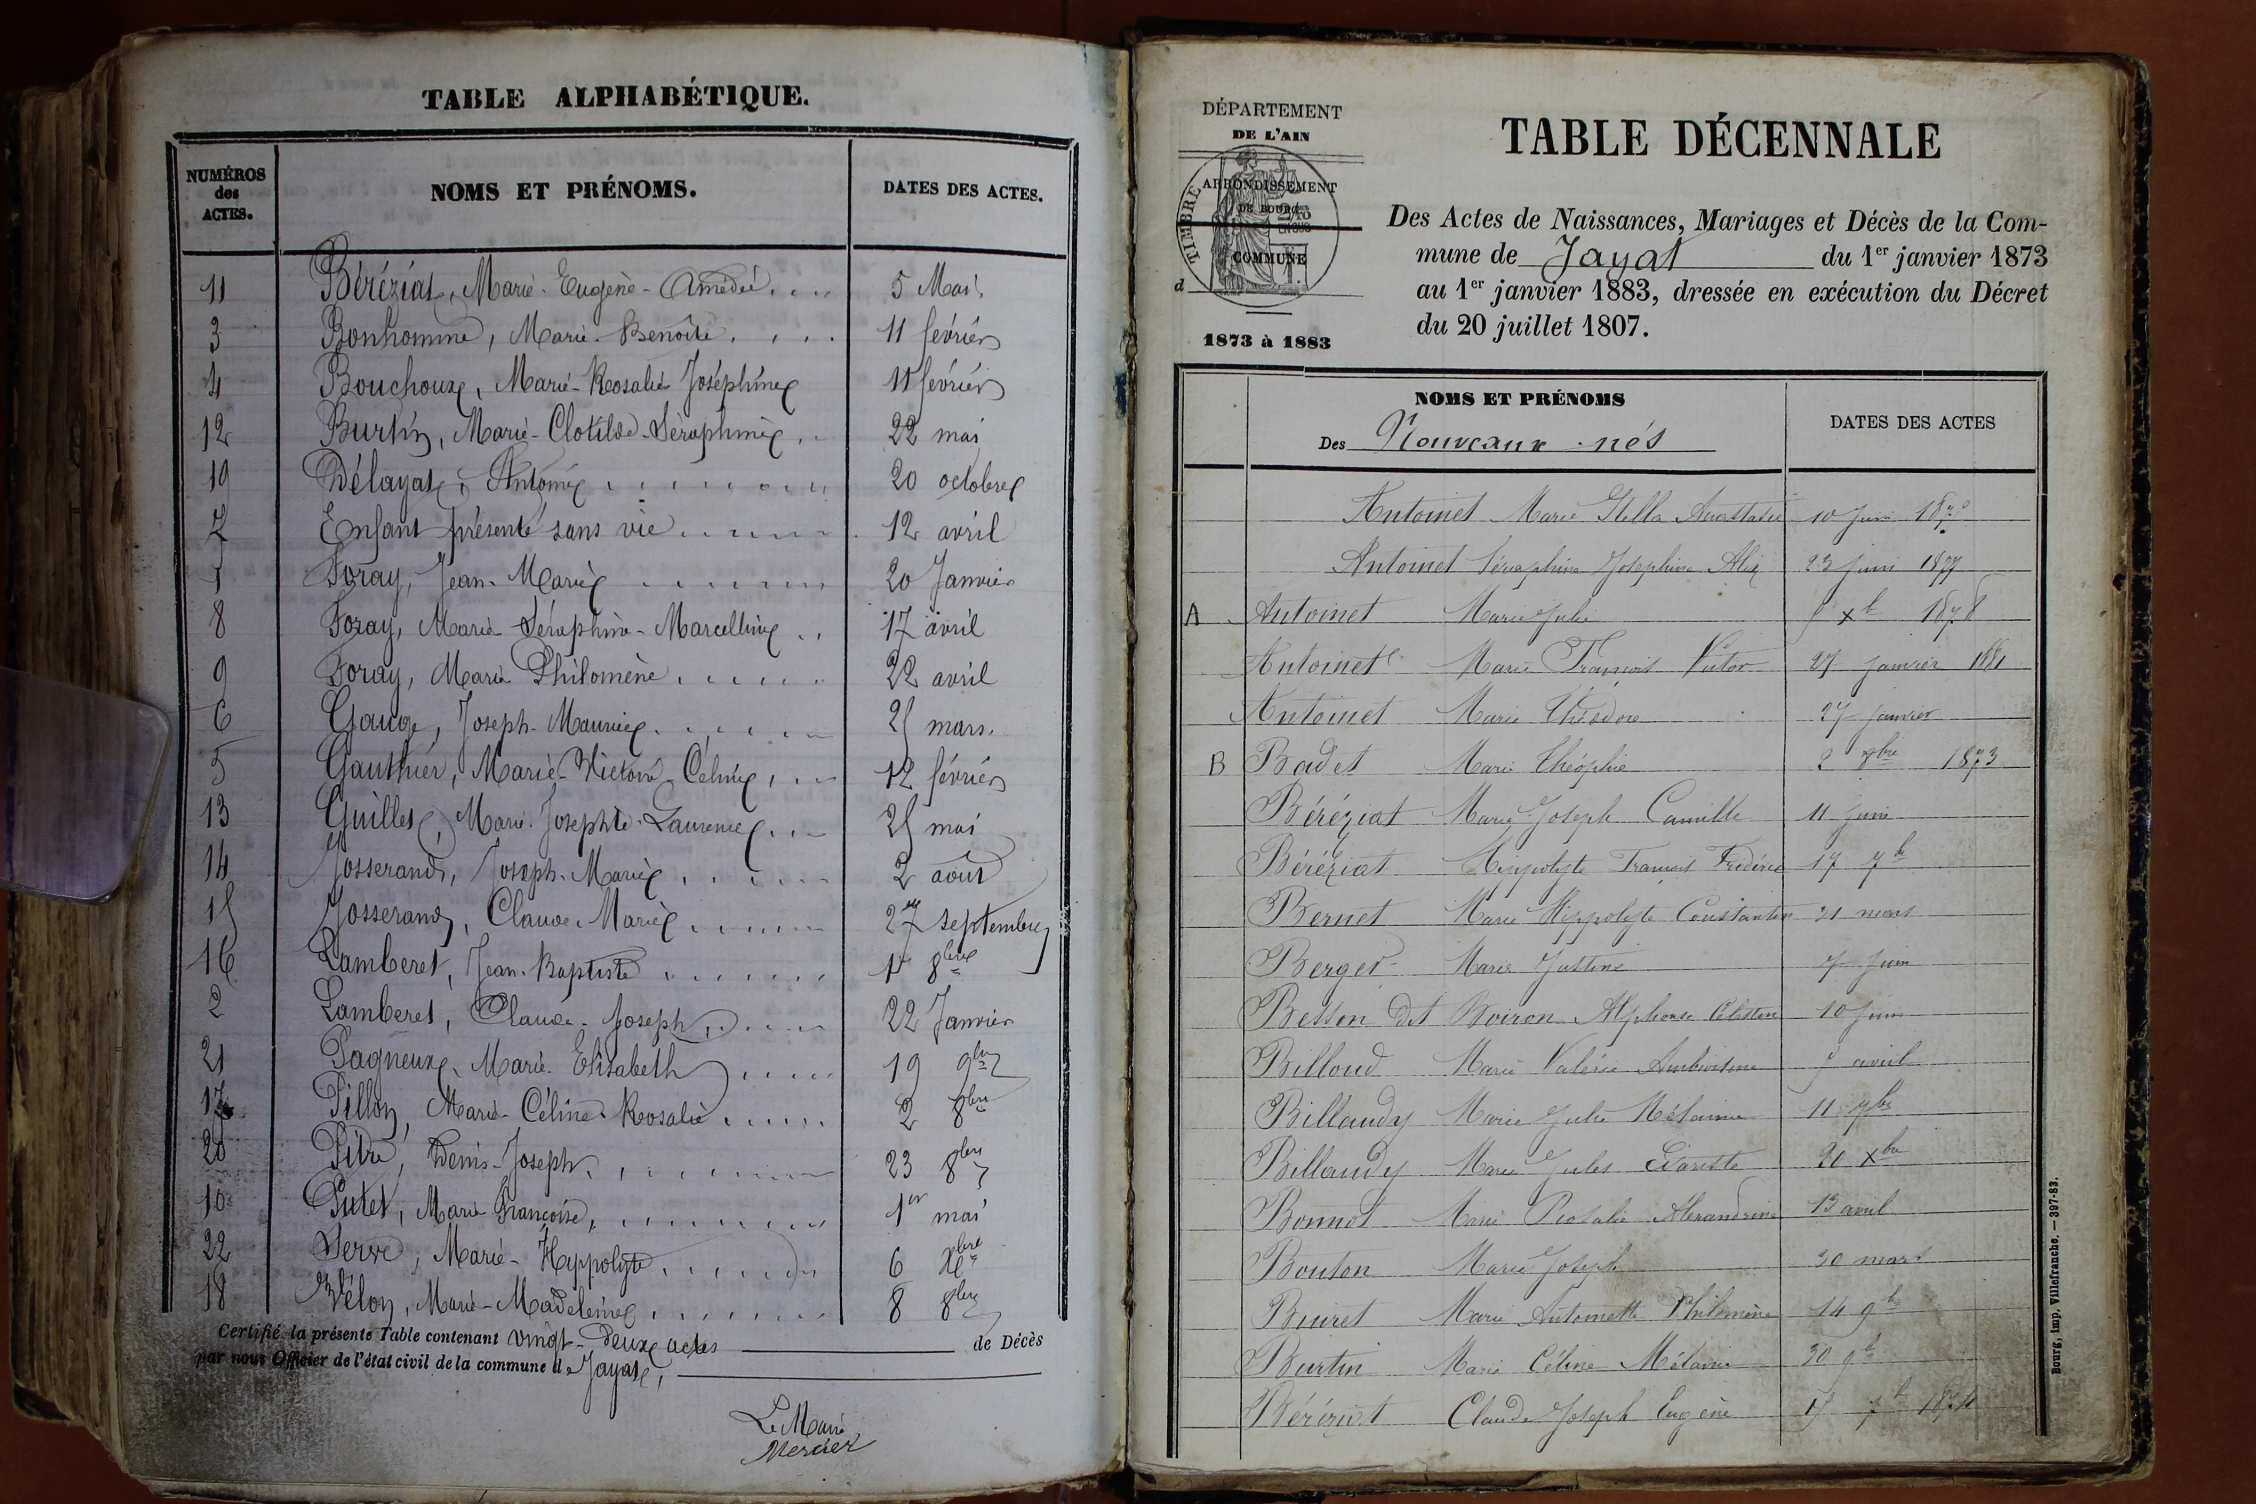 TABLE ALPHABÉTIQUE.
NUMÉROS des ACTES. NOMS ET PRÉNOMS. DATES DES ACTES.
11 Béréziat, Marie-Eugène-Amédée 5 Mai
3 Bonhomme, Marie-Benoite 11 février
4 Bouchoux, Marie-Rosalie Joséphine 11 février
12 Burtin, Marie-Clotilde-Séraphine 22 mai
19 Délayat, Antoine 20 octobre
7 Enfant présenté sans vie 12 avril
1 Foray, Jean-Marie 20 Janvier
8 Foray, Marie-Séraphine-Marcelline 17 avril
9 Foray, Marie Philomène 22 avril
6 Gauge, Joseph-Maurice 25 mars.
5 Gauthier, Marie-Victoire-Célinie 12 février
13 Guillet, Marie-Josephte-Laurence 25 mai
14 Josserand, Joseph-Marie 2 août
15 Josserand, Claude-Marie 27 septembre
16 Lamberet, Jean-Baptiste 1er 8bre
2 Lamberet, Claude-Joseph 22 Janvier
21 Pagneux, Marie Elisabeth 19 9bre
17 Pillon, Marie-Céline-Rosalie 2 8bre
20 Pitre, Denis-Joseph 23 8bre
10 Putet, Marie-Françoise 1er mai
22 Serve, Marie-Hippolyte 6 Xbre
18 Vélon, Marie-Madeleine 8 8bre
Certifié la présente Table contenant vingt-deux actes de Décès
par nous Officier de l'état civil de la commune de Jayat,
Le Maire
Mercier
DÉPARTEMENT
DE L'AIN
ARRONDISSEMENT
DE BOURG
TIMBRE
COMMUNE
d
1873 à 1883
TABLE DÉCENNALE
Des Actes de Naissances, Mariages et Décès de la Com-
mune de Jayat du 1er janvier 1873
au 1er janvier 1883, dressée en exécution du Décret
du 20 juillet 1807.
NOMS ET PRÉNOMS
Des Nouveaux-nés
DATES DES ACTES
Antoinet Marie Stella Anastasie 10 Juin
Antoinet Séraphine Joséphine Alix 23 juin 1877
A Antoinet Marie Julie 5 Xb 1878
Antoinet Marie François Victor 27 janvier 1881
Antoinet Marie Théodore 27 janvier
B Badet Marie Théophie 2 1873
Béréziat Marie Joseph Camille 11 juin
Béréziat Hippolyte François Frédéric 17 7b
Bernet Marie Hippolyte Constantin 31 mars
Berger Marie Justine 7 Juin
Besson dit Voiron Alphonse Célestin 10 juin
Billoud Marie Valérie Ambroisine 5 avril
Billaudy Marie Julie Mélanie 11 7bre
Billaudy Marie Jules Evariste 20 Xbre
Bonnot Marie Rosalie Alexandrine 13 avril
Bouton Marie Joseph 30 mars
Buiret Marie Antoinette Philomène 14 9b
Burtin Marie Céline Mélanie 30 9b
Béréziat Claude Joseph Eugène 15 7b 1874
Bourg, imp. Villefranche. — 397-83.